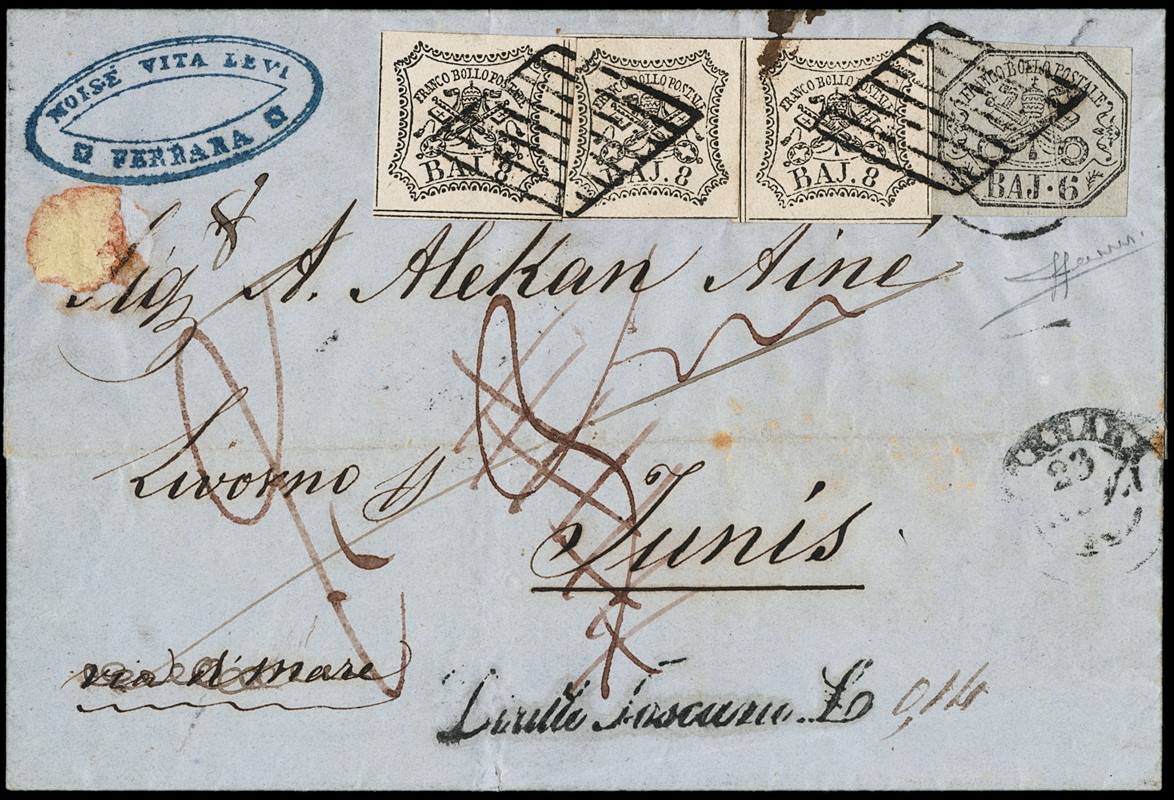 MOISÉ VITA LEVI
FERRARA
FRANCO BOLLO POSTALE
BAJ. 8
FRANCO BOLLO POSTALE
BAJ. 8
FRANCO BOLLO POSTALE
BAJ. 8
FRANCO BOLLO POSTALE
BAJ. 6
8
Sig A. Alekan Ainé
Livorno
Tunis.
23
via d'mare
Diritto Toscano. L 0,14